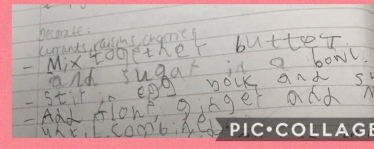 Decorate:
currants, raisins, cherries
- Mix together butter
and sugar in a bowl.
- Stir in egg yolk and
- Add flour, ginger and
until combined
PIC•COLLAGE